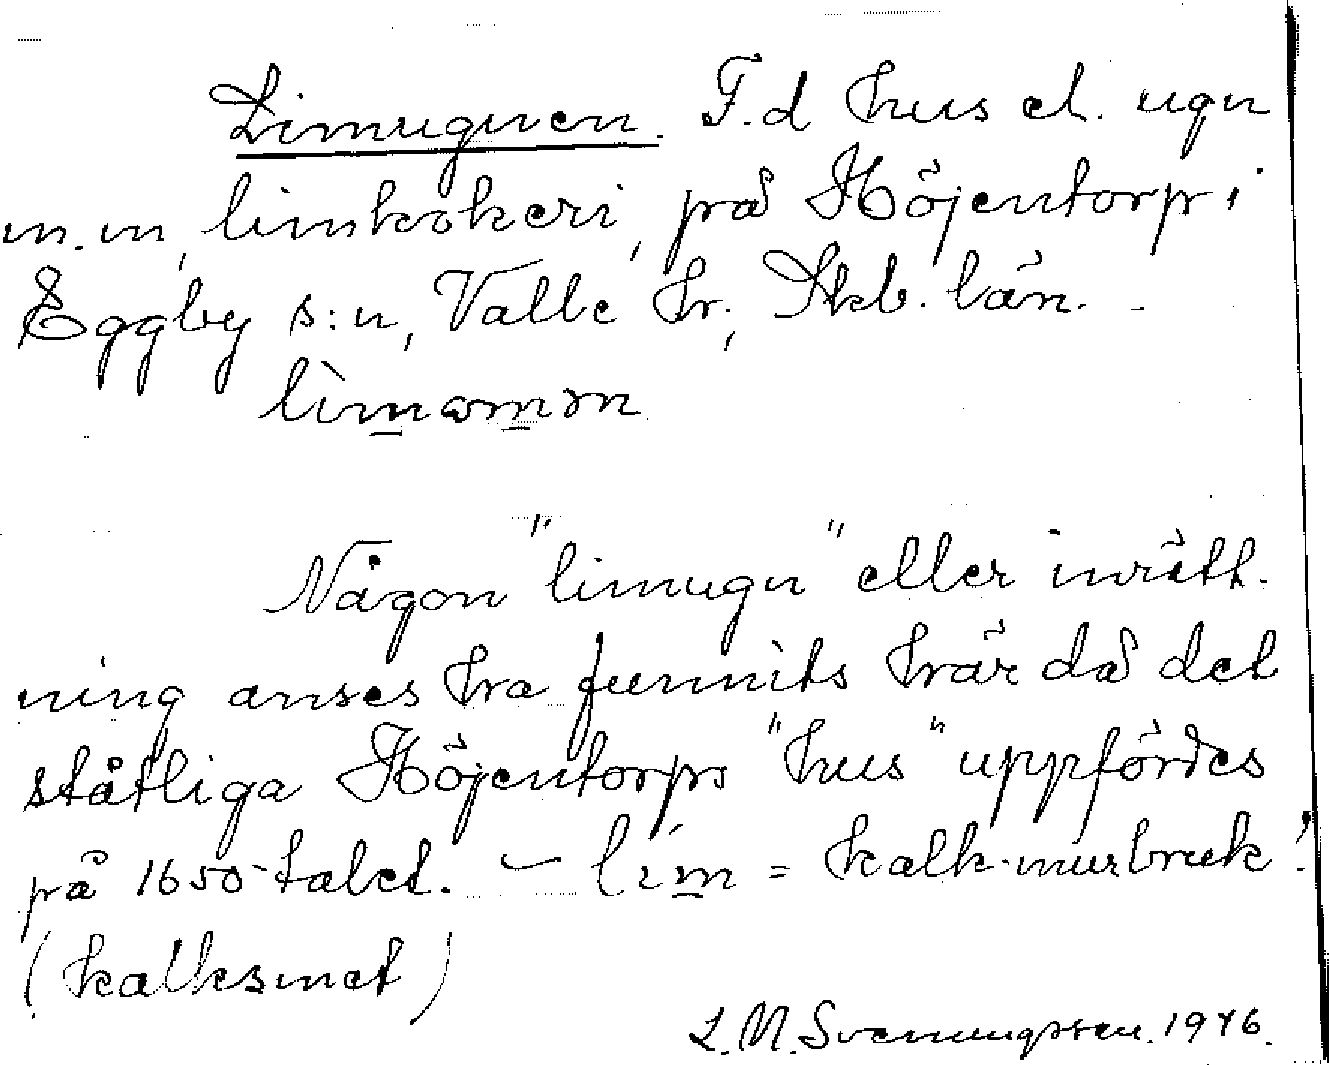 Limugnen. F.d hus el. ugn
m.m, limkokeri, på Höjentorp i
Eggby s:n, Valle hr., Skb. län.
Någon "limugn" eller inrätt-
ning anses ha funnits här då det
ståtliga Höjentorps "hus" uppfördes
på 1650-talet. – lim = kalk-murbruk!
(kalksmet)
L.M. Svenungsson. 1946.